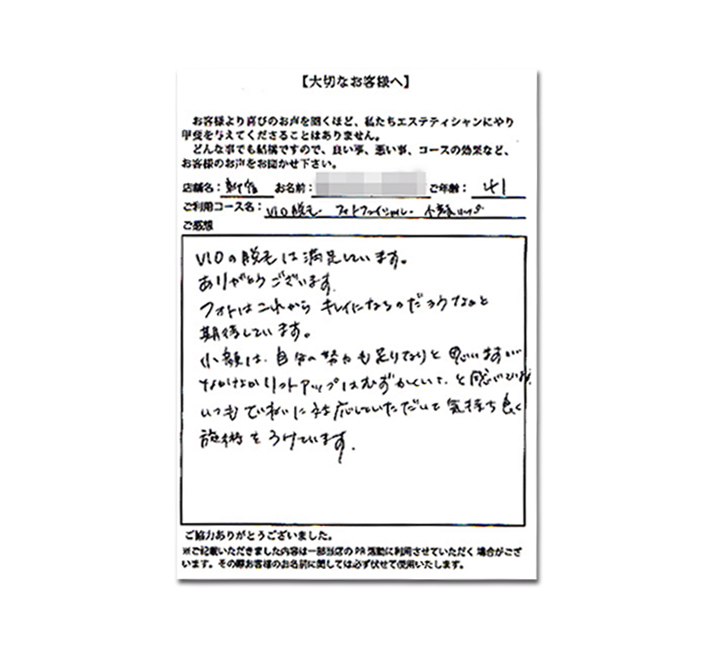 【大切なお客様へ】
お客様より喜びのお声を聞くほど、私たちエステティシャンにやり
甲斐を与えてくださることはありません。
どんな事でも結構ですので、良い事、悪い事、コースの効果など、
お客様のお声をお聞かせ下さい。
店舗名：新宿 お名前： ご年齢：41
ご利用コース名：VIO脱毛・フォトフェイシャル・小顔
ご感想
VIOの脱毛は満足しています。
ありがとうございます。
フォトはこれからキレイになるのだろうなぁと
期待しています。
小顔は、自分の努力も足りてないと思いますが
なかなかリフトアップはむずかしいな、と感じています。
いつもていねいに対応していただいて気持ち良く
施術をうけています。
ご協力ありがとうございました。
※ご記載いただきました内容は一部当店のPR活動に利用させていただく場合がござ
います。その際お客様のお名前に関しては必ず伏せて使用いたします。